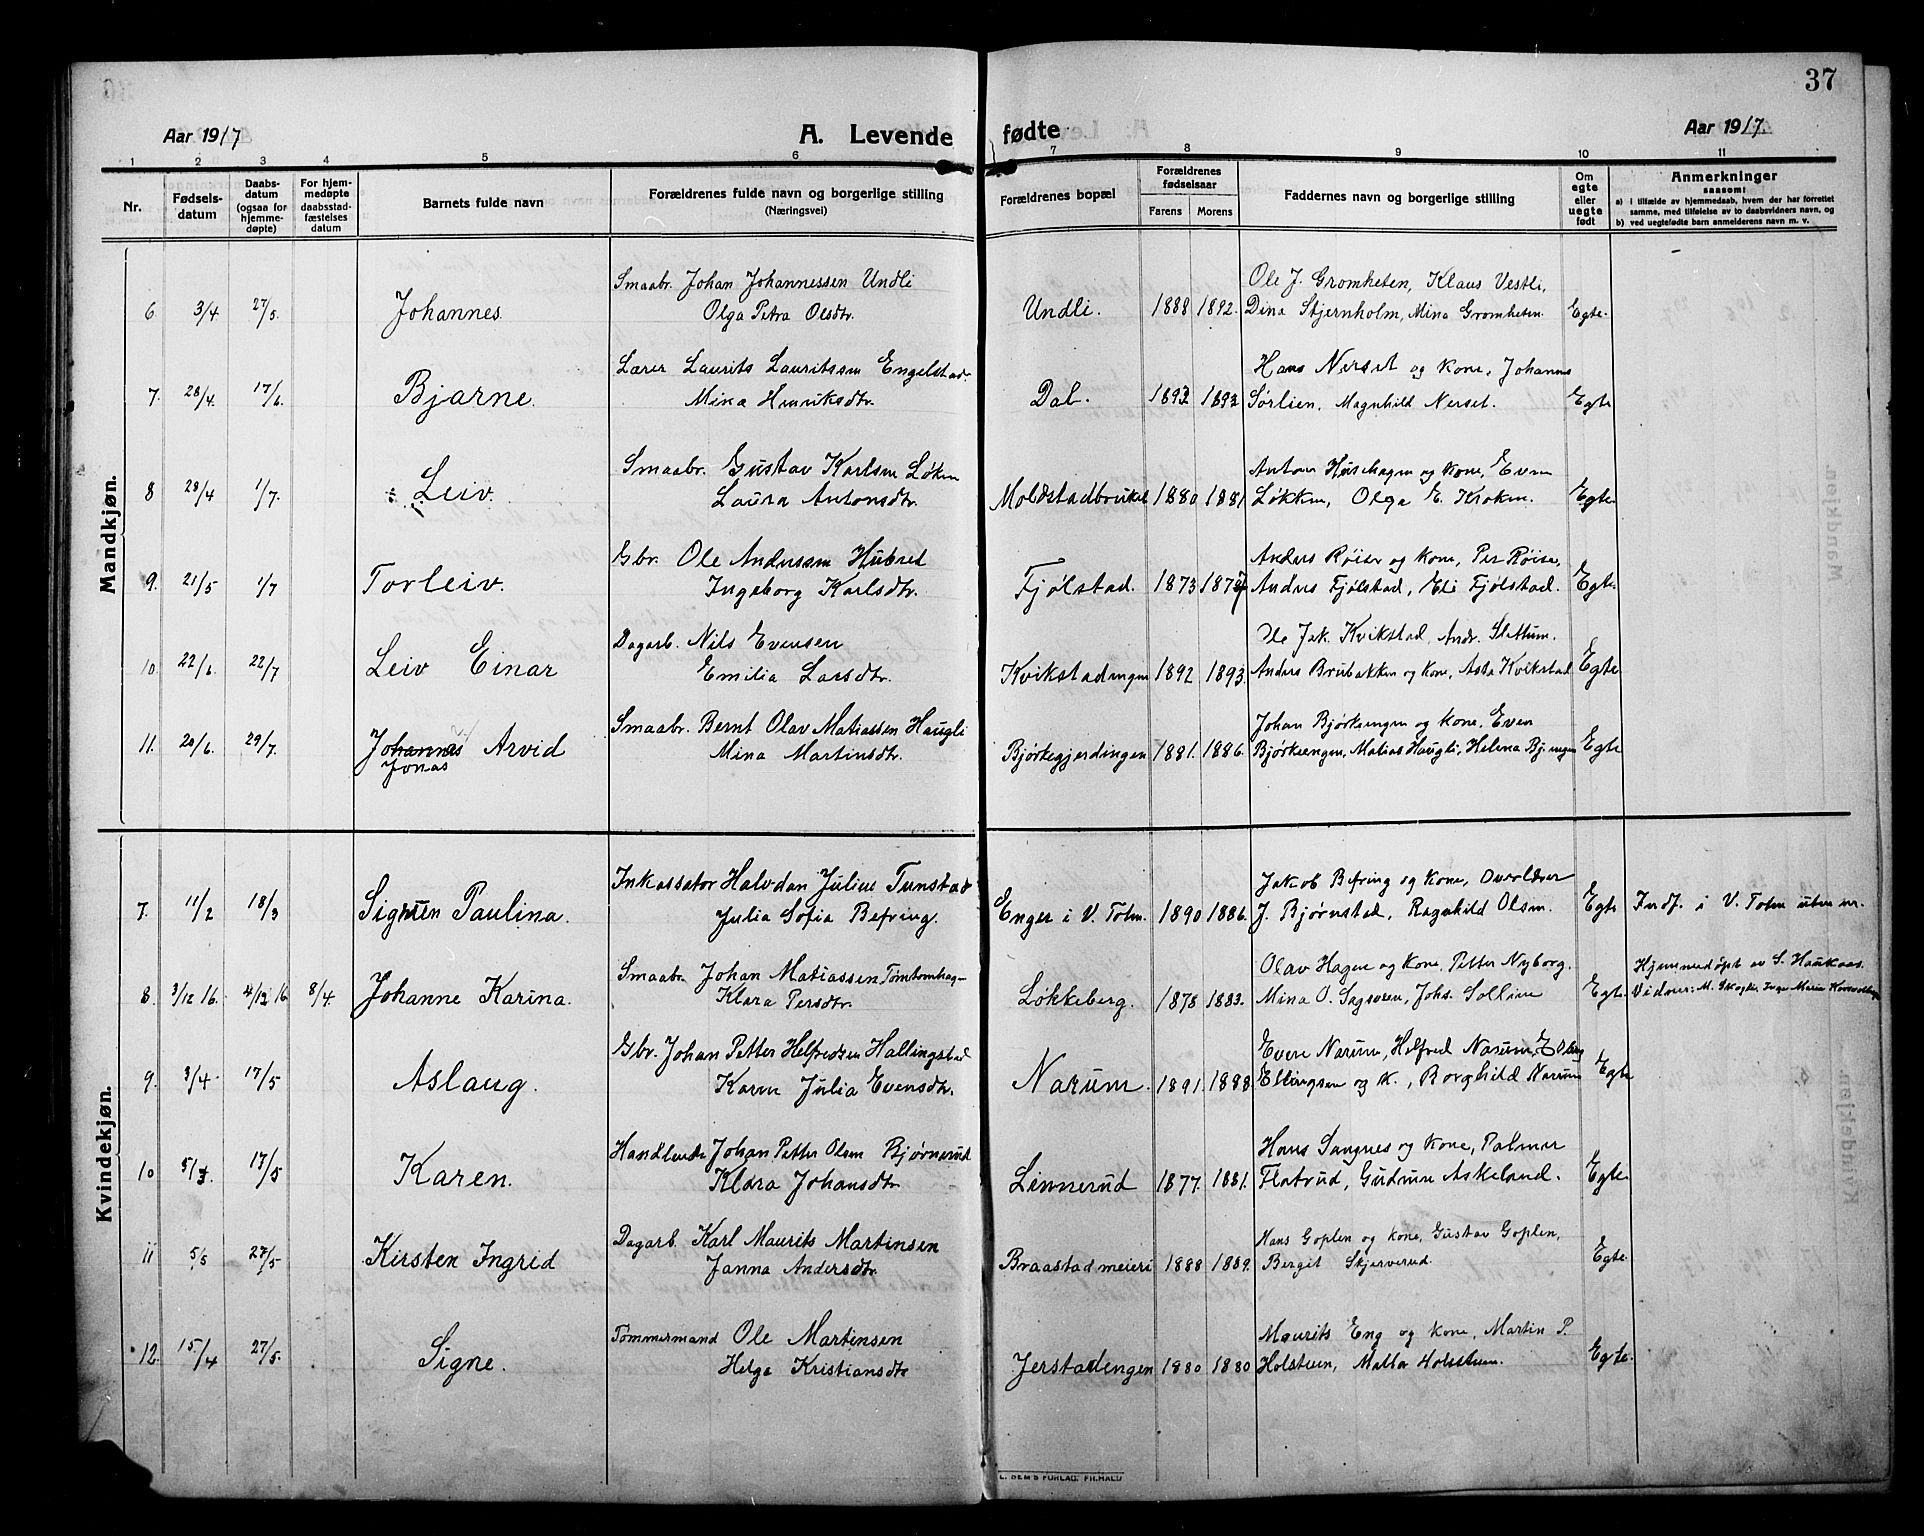 37
Aar 1917
A. Levende
fødte
Aar 1917.
1 2 3 4 5 6 7 8 9 10 11
Nr.
Fødsels-
datum
Daabs-
datum
(ogsaa for
hjemme-
døpte)
For hjem-
medøpte
daabsstad-
fæstelses
datum
Barnets fulde navn
Forældrenes fulde navn og borgerlige stilling
(Næringsvei)
Forældrenes bopæl
Forældrenes
fødselsaar
Farens Morens
Faddernes navn og borgerlige stilling
Om
egte
eller
uegte
født
Anmerkninger
saasom:
a) i tilfælde av hjemmedaab, hvem der har forrettet
samme, med tilføielse av to daabsvidners navn, og
b) ved uegtefødte barn anmelderens navn m. v.
Mandkjøn.
Smaabr. Johan Johannessen Undli
Ole J. Gromheten, Klaus Vestli,
6 3/4 27/5. Johannes. Olga Petra Olsdtr. Undli. 1888 1892. Dina Stjernholm, Mina Gromheten. Egte.
Lærer Laurits Lauritssen Engelstad.
Hans Nerset og kone, Johannes
7. 28/4. 17/6. Bjarne. Mina Henriksdtr. Dal. 1892 1892. Sørlien, Magnhild Nerset. Egte
Smaabr. Gustav Karlsen Løken
Anton Huschagen og kone, Even
8 28/4 1/7. Leiv. Laura Antonsdtr. Moldstadbruket 1880 1881 Løkken, Olga E. Kroken. Egte.
Gbr. Ole Anderssen Hubred
Anders Røise og kone, Per Røise,
9. 21/5 1/7 Torleiv. Ingeborg Karlsdtr. Fjølstad. 1873 187 Anders Fjølstad, Eli Fjølstad. Egte.
Dagarb. Nils Evensen
Ole Jak. Kvikstad, Andr. Slettum.
10. 22/6. 22/7 Leiv Einar Emilia Larsdtr. Kvikstadengen 1892 1893. Anders Brubakken og kone, Asta Kvikstad Egte
Smaabr. Bernt Olav Matiassen Haugli
Johan Bjørkeengen og kone, Even
11. 20/6. 29/7. Johannes Arvid Mina Martinsdtr. Bjørkegjerdingen 1881. 1886. Bjørkeengen, Matias Haugli, Helena Bj.engen Egte
Jonas
Kvindekjøn.
Inkassator Halvdan Julius Tunstad
Jakob Befring og kone, Overlærer
7. 11/2 18/3 Sigrun Paulina. Julia Sofia Befring. Enger i V. Toten. 1890 1886. J. Bjørnstad, Ragnhild Olsen. Egte Indf. i V. Toten uten nr.
Smaabr. Johan Matiassen Tømtomhag-
Olav Hagen og kone, Petter Nyborg.
Hjemmedøpt av S. Haukaas.
8. 3/12 16. 4/12 16 8/4. Johanne Karina. Klara Persdtr. Løkkeberg. 1878 1883. Mina O. Sagvoren, Johs. Sollien Egte. Vidner: M. Skogli, Inga Maria
Gbr. Johan Petter Helfredsen Hallingstad
Even Narum, Helfred Narum,
9. 3/4 17/5 Aslaug. Karen Julia Evensdtr. Narum. 1891 1888. Ellingsen og k., Borghild Narum Egte
Handlende Johan Petter Olsen Bjørnerud
Hans Sangnes og kone, Palmer
10 5/3. 17/5 Karen. Klara Johansdtr. Linnerud 1877. 1881. Flatrud, Gudrun Askeland. Egte.
Dagarb. Karl Maurits Martinsen
Hans Goplen og kone, Gustav Goplen,
11 5/5 27/5 Kirsten Ingrid Janna Andersdtr. Braastad meieri 1888 1889. Bergit Skjerverud. Egte.
Tømmermand Ole Martinsen
Maurits Eng og kone, Martin P.
12. 15/4 27/5. Signe. Helga Kristiansdtr Jerstadengen 1880 1880 Holsteen, Malla Holsteen. Egte.
L. BEM'S FORLAG. FR.HALD